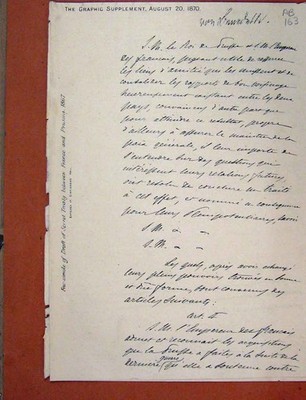 THE GRAPHIC SUPPLEMENT, AUGUST 20, 1870.
163
Fac-simile of Draft of Secret Treaty between France and Prussia, 1867
S. M. le Roi de Prusse et S. M. l'Empereur
des français, jugeant utile de resserrer
les liens d'amitié qui les unissent et de
consolider les rapports de bon voisinage
heureusement existant entre les deux
pays, convaincus d'autre part que
pour atteindre ce résultat, propre
d'ailleurs à assurer le maintien de la
paix générale, il leur importe de
s'entendre sur des questions qui
intéressent leurs relations futures,
ont résolu de conclure un Traité
à cet effet, et nommé en conséquence
pour leurs Plénipotentiaires, savoir
S. M.
S. M.
Les quels, après avoir échangé
leurs pleins pouvoirs, trouvés en bonne
et due forme, sont convenus des
articles suivants:
art. I
S. M. l'Empereur des français
admet et reconnait les acquisitions
que la Prusse a faites à la suite de la
dernière guerre qu'elle a soutenue contre